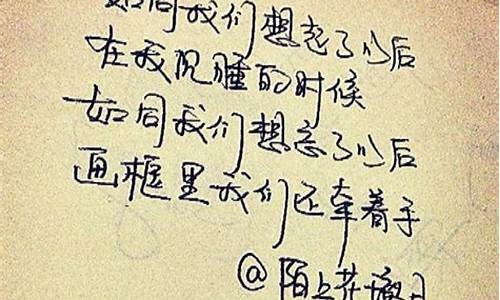 如同我们想忘了以后
在我沉睡的时候
如同我们想忘了以后
画框里我们还牵着手
@陌上花